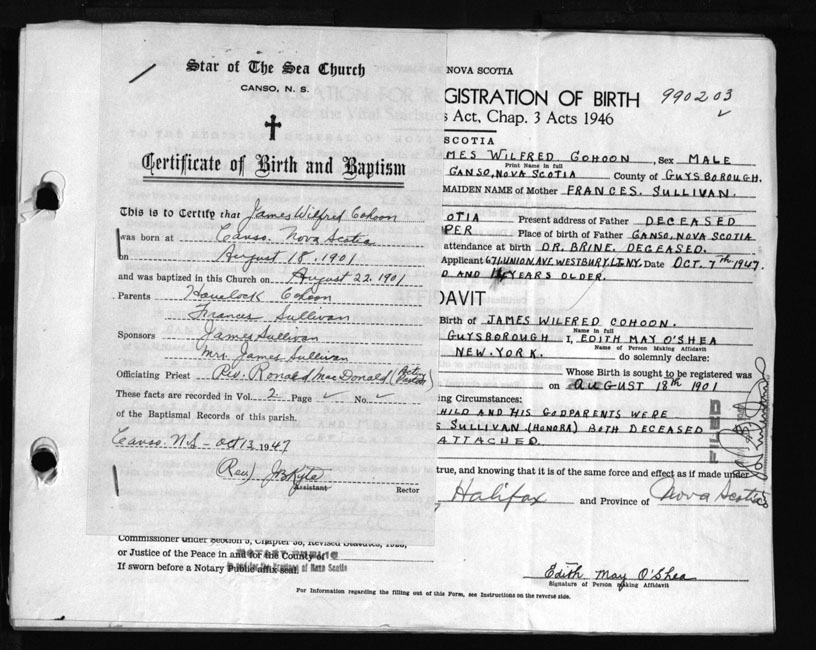 Star of The Sea Church
CANSO, N. S.
Certificate of Birth and Baptism
This is to Certify that James Wilfred Cohoon
was born at Canso. Nova Scotia
on August 18, 1901
and was baptized in this Church on August 22, 1901
Parents Havelock Cohoon
Frances Sullivan
Sponsors James Sullivan
Mrs. James Sullivan
Officiating Priest Rev. Ronald MacDonald (Act. Pastor)
These facts are recorded in Vol. 2 Page ✓ No. ✓
of the Baptismal Records of this parish.
Canso. N.S - Oct 12, 1947
(Rev) J B Kyte
Assistant Rector
NOVA SCOTIA
GISTRATION OF BIRTH 990203
s Act, Chap. 3 Acts 1946
SCOTIA
MES WILFRED COHOON, Sex MALE
Print Name in full
CANSO, NOVA SCOTIA County of GUYSBOROUGH.
MAIDEN NAME of Mother FRANCES. SULLIVAN.
OTIA Present address of Father DECEASED
PER Place of birth of Father CANSO, NOVA SCOTIA
attendance at birth DR. BRINE, DECEASED.
Applicant 671 UNION AVE. WESTBURY, L.I. N.Y. Date OCT. 7th 1947.
D AND YEARS OLDER.
DAVIT
Birth of JAMES WILFRED COHOON.
Name in full
GUYSBOROUGH I, EDITH MAY O'SHEA
Name of Person Making Affidavit
NEW. YORK. do solemnly declare:
Whose Birth is sought to be registered was
on AUGUST 18th 1901
ing Circumstances:
HILD AND HIS GODPARENTS WERE
S SULLIVAN. (HONORA) BOTH DECEASED
ATTACHED.
true, and knowing that it is of the same force and effect as if made under
Halifax and Province of Nova Scotia
Commissioner under Section 5, Chapter 38, Revised Statutes, 1923,
or Justice of the Peace in and for the County of
If sworn before a Notary Public affix seal.
NOTARY PUBLIC
in and for the Province of Nova Scotia
Edith May O'Shea
Signature of Person making Affidavit
For Information regarding the filling out of this Form, see Instructions on the reverse side.